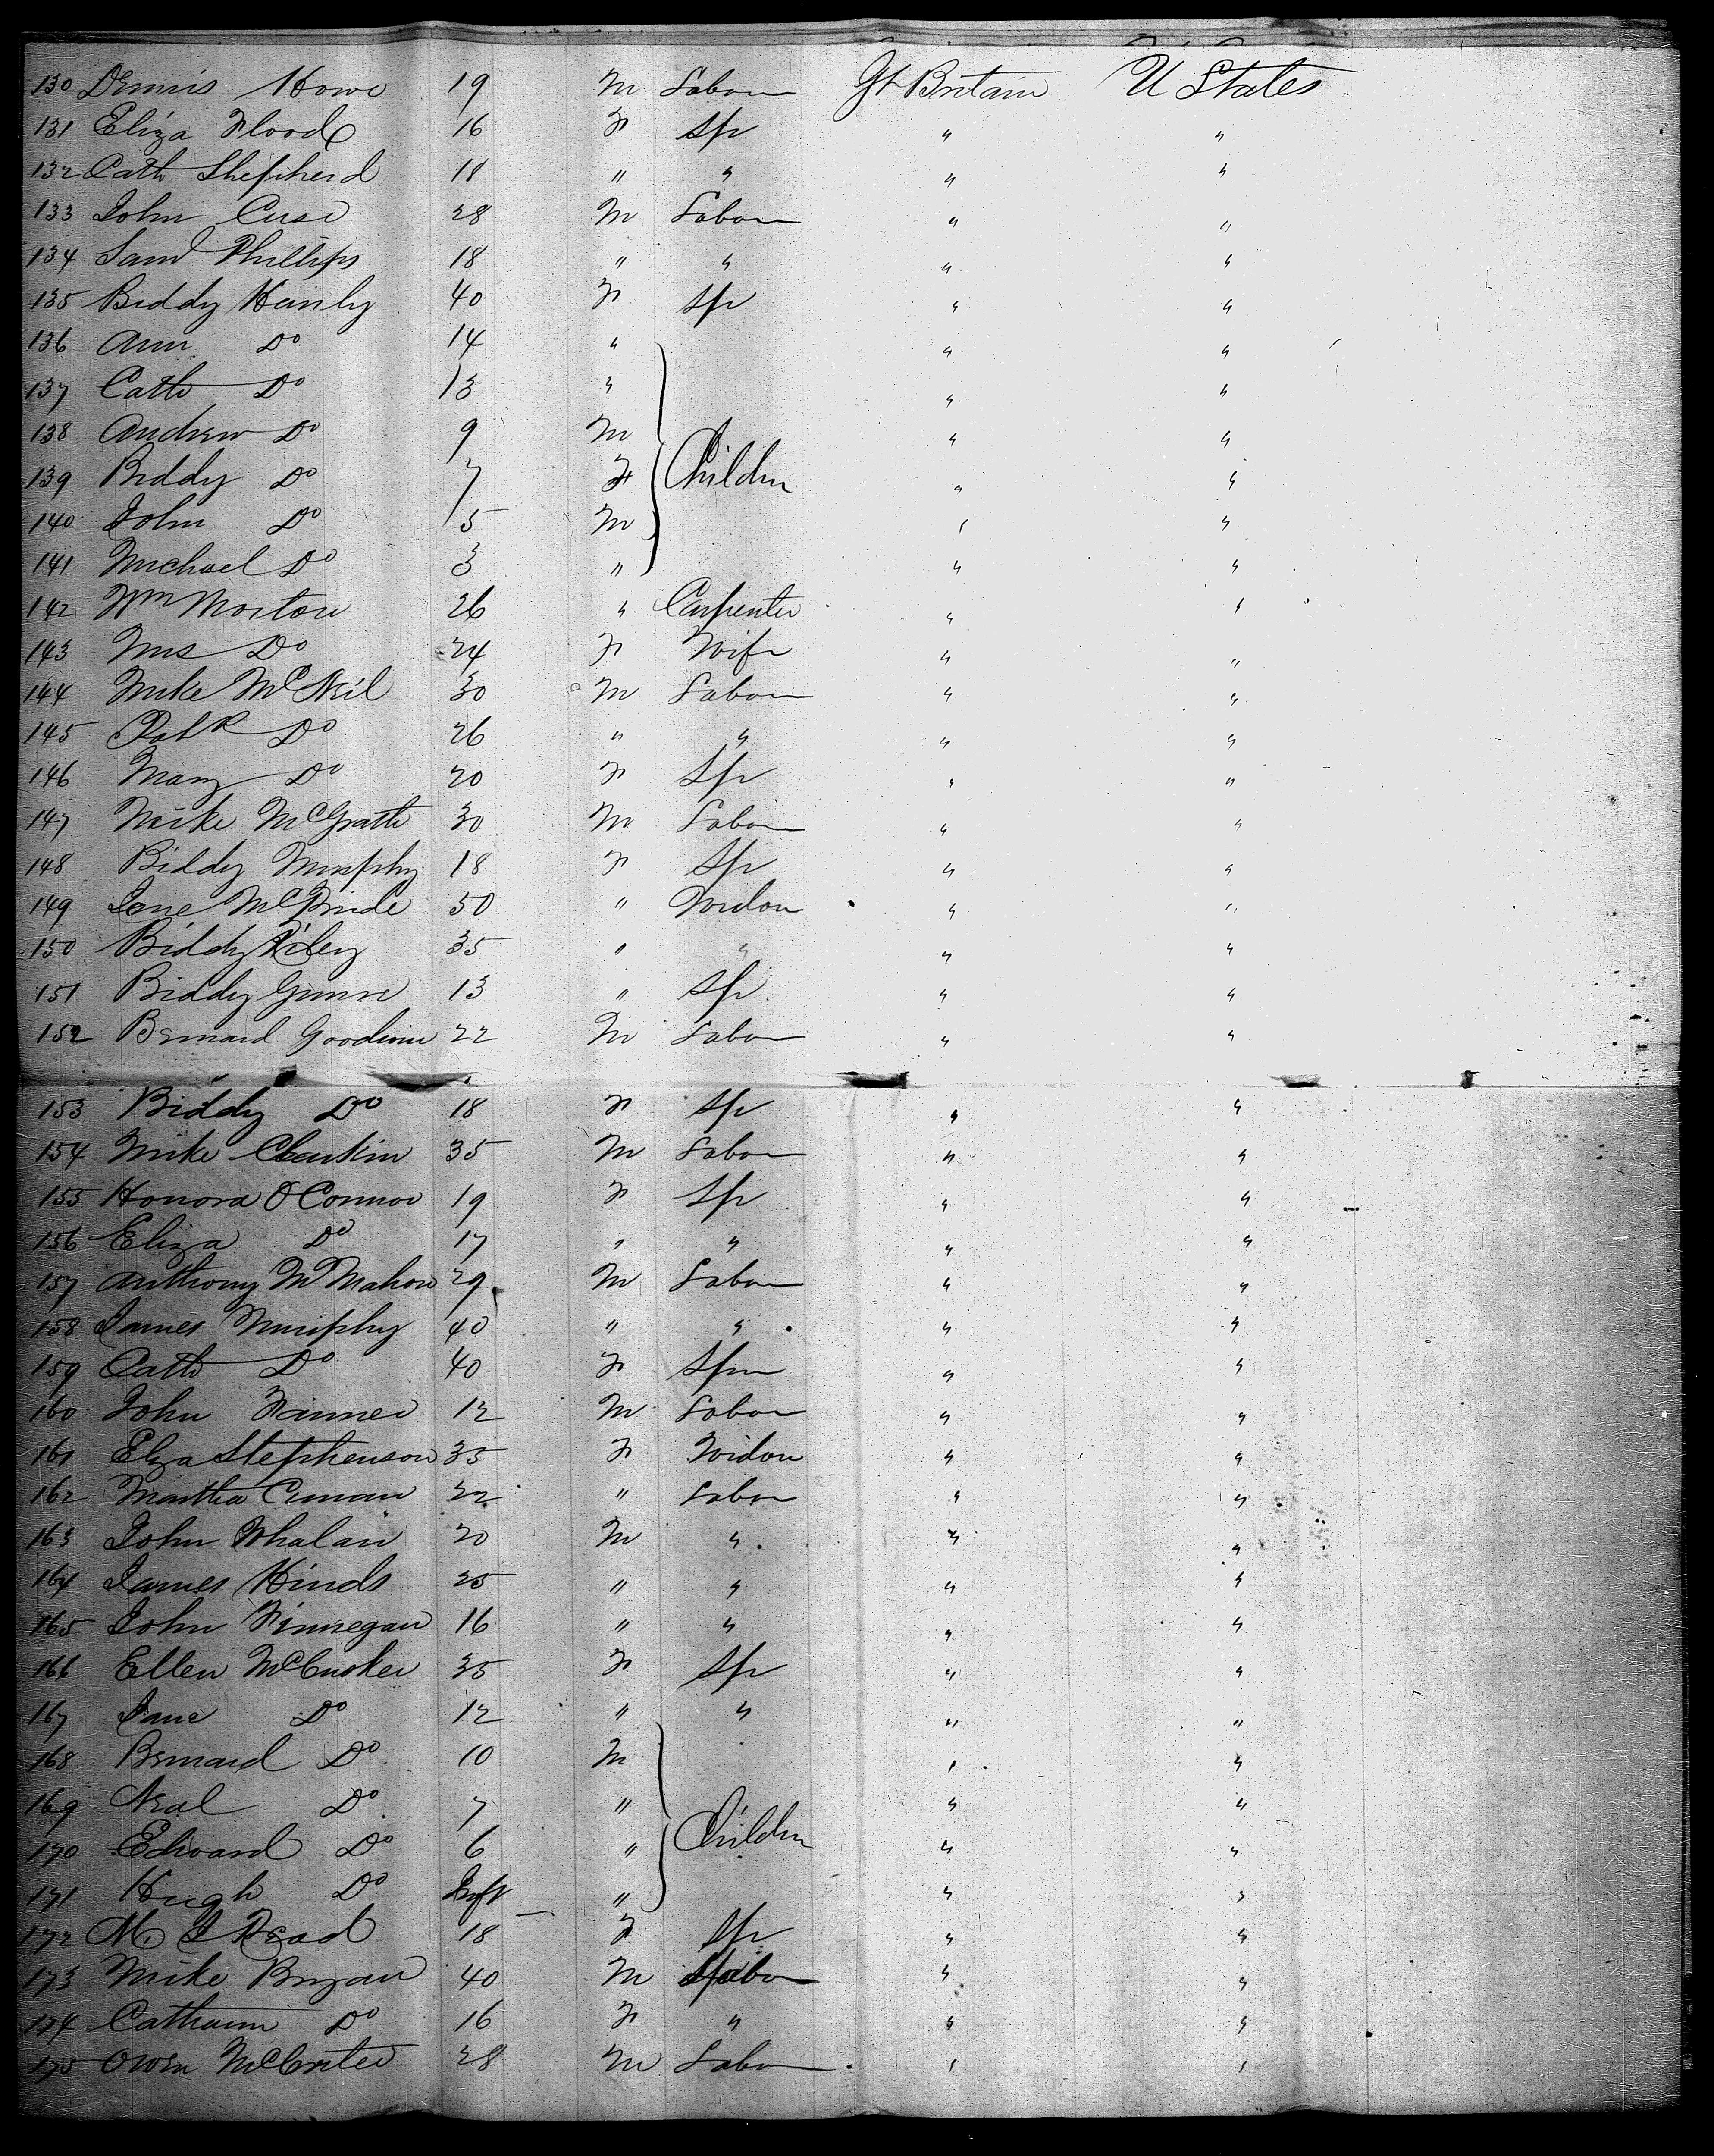 130 Dennis Howe 19 M Labor Gt Britain U States
131 Eliza Flood 16 F Sp " "
132 Cath Shepherd 18 " " " "
133 John Cuse 28 M Labor " "
134 Saml Phillips 18 " " " "
135 Biddy Hanly 40 F Sp " "
136 Ann Do 14 " " "
137 Cath Do 13 " " "
138 Andrew Do 9 M " "
139 Biddy Do 7 F Children " "
140 John Do 5 M " "
141 Michael Do 3 " " "
142 Wm Morton 26 " Carpenter " "
143 Mrs Do 24 F Wife " "
144 Mike McNeil 30 M Labor " "
145 Patk Do 26 " " " "
146 Mary Do 20 F Sp " "
147 Mike McGrath 30 M Labor " "
148 Biddy Murphy 18 F Sp " "
149 Jane McBride 50 " Widow " "
150 Biddy Riley 35 " " " "
151 Biddy 13 " Sp " "
152 Bernard Goodwin 22 M Labor " "
153 Biddy Do 18 F Sp " "
154 Mike Clarkin 35 M Labor " "
155 Honora O Connor 19 F Sp " "
156 Eliza Do 17 " " " "
157 Anthony McMahon 29 M Labor " "
158 James Murphy 40 " " " "
159 Cath Do 40 F Spn " "
160 John 12 M Labor " "
161 Eliza Stephenson 35 F Widow " "
162 Martha 22 " Labor " "
163 John Whalan 20 M " " "
164 James Hinds 25 " " " "
165 John Finnegan 16 " " " "
166 Ellen McCusker 35 F Sp " "
167 Jane Do 12 " " " "
168 Bernard Do 10 M " "
169 Neal Do 7 " " "
170 Edward Do 6 " Children " "
171 Hugh Do Inft " " "
172 M J Read 18 F Sp " "
173 Mike Bryan 40 M Labor " "
174 Do 16 F " " "
175 Owen 28 M Labor " "